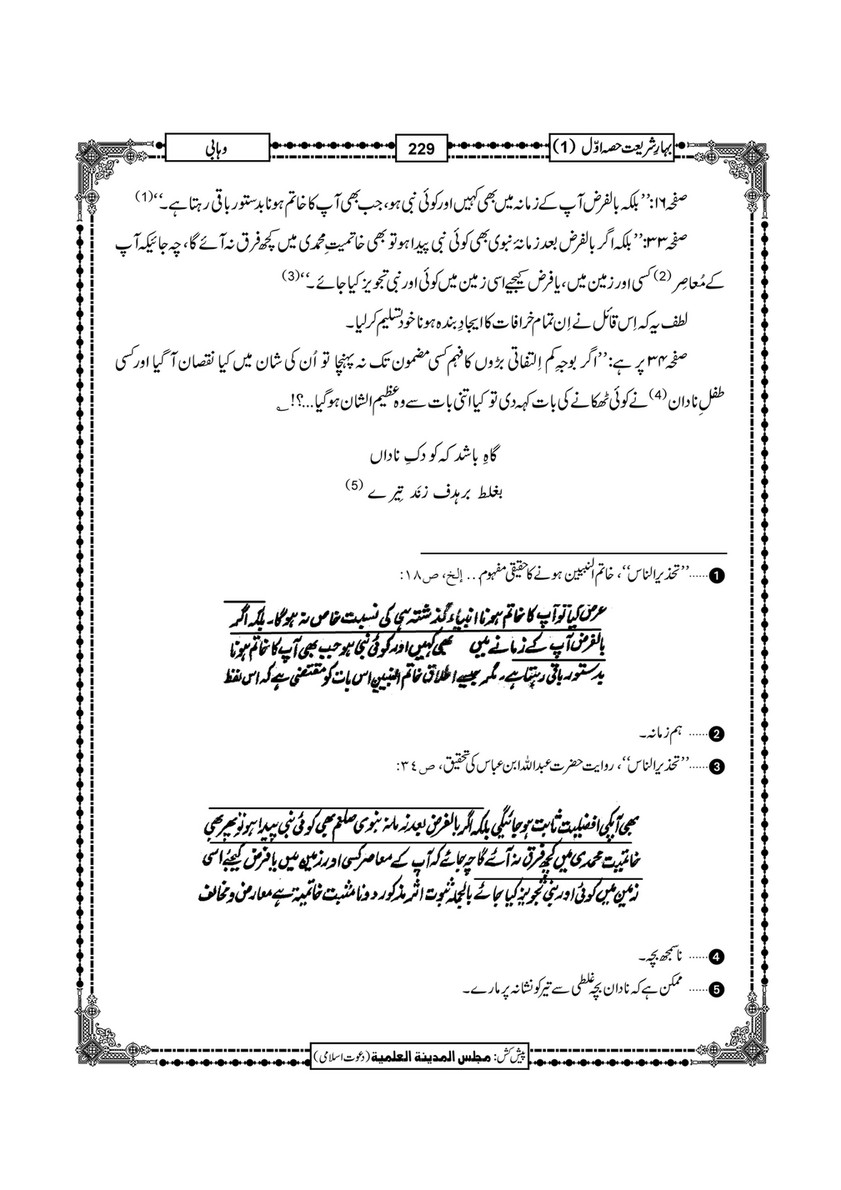 بہارِ شریعت حصہ اوّل (1)
229
وہابی
صفحہ ۱۶: ’’بلکہ بالفرض آپ کے زمانہ میں بھی کہیں اور کوئی نبی ہو، جب بھی آپ کا خاتم ہونا بدستور باقی رہتا ہے۔‘‘(1)
صفحہ ۳۳: ’’بلکہ اگر بالفرض بعد زمانۂ نبوی بھی کوئی نبی پیدا ہو تو بھی خاتمیتِ محمدی میں کچھ فرق نہ آئے گا، چہ جائیکہ آپ
کے مُعاصِر (2) کسی اور زمین میں، یا فرض کیجیے اسی زمین میں کوئی اور نبی تجویز کیا جائے۔‘‘(3)
لطف یہ کہ اِس قائل نے اِن تمام خرافات کا ایجادِ بندہ ہونا خود تسلیم کرلیا۔
صفحہ ۳۴ پر ہے: ’’اگر بوجہِ کم اِلتفاتی بڑوں کا فہم کسی مضمون تک نہ پہنچا تو اُن کی شان میں کیا نقصان آگیا اور کسی
طفلِ نادان (4) نے کوئی ٹھکانے کی بات کہہ دی تو کیا اتنی بات سے وہ عظیم الشان ہوگیا...؟! ؎
گاہِ باشد کہ کودکِ ناداں
بغلط بر ہدف زنَد تِیرے (5)
❶...... ’’تحذیر الناس‘‘، خاتم النبیین ہونے کا حقیقی مفہوم .. إلخ، ص ۱۸:
عرض کیا تو آپ کا خاتم ہونا انبیاء گذشتہ ہی کی نسبت خاص نہ ہوگا۔ بلکہ اگر
بالفرض آپ کے زمانے میں بھی کہیں اور کوئی نبی ہو جب بھی آپ کا خاتم ہونا
بدستور باقی رہتا ہے۔ مگر جیسے اطلاق خاتم النبیین اس بات کو مقتضی ہے کہ اس لفظ
❷...... ہم زمانہ۔
❸...... ’’تحذیر الناس‘‘، روایت حضرت عبداللہ ابن عباس کی تحقیق، ص ٣٤:
بھی آپکی افضلیت ثابت ہو جائیگی بلکہ اگر بالفرض بعد زمانہ نبوی صلعم بھی کوئی نبی پیدا ہو تو پھر بھی
خاتمیت محمدی میں کچھ فرق نہ آئے گا چہ جائے کہ آپ کے معاصر کسی اور زمین میں یا فرض کیجئے اسی
زمین میں کوئی اور نبی تجویز کیا جائے بالجملہ ثبوت اثر مذکور دونا مثبت خاتمیت ہے معارض و مخالف
❹...... ناسمجھ بچہ۔
❺...... ممکن ہے کہ نادان بچہ غلطی سے تیر کو نشانہ پر مارے۔
پیش کش: مجلس المدینة العلمیة (دعوت اسلامی)